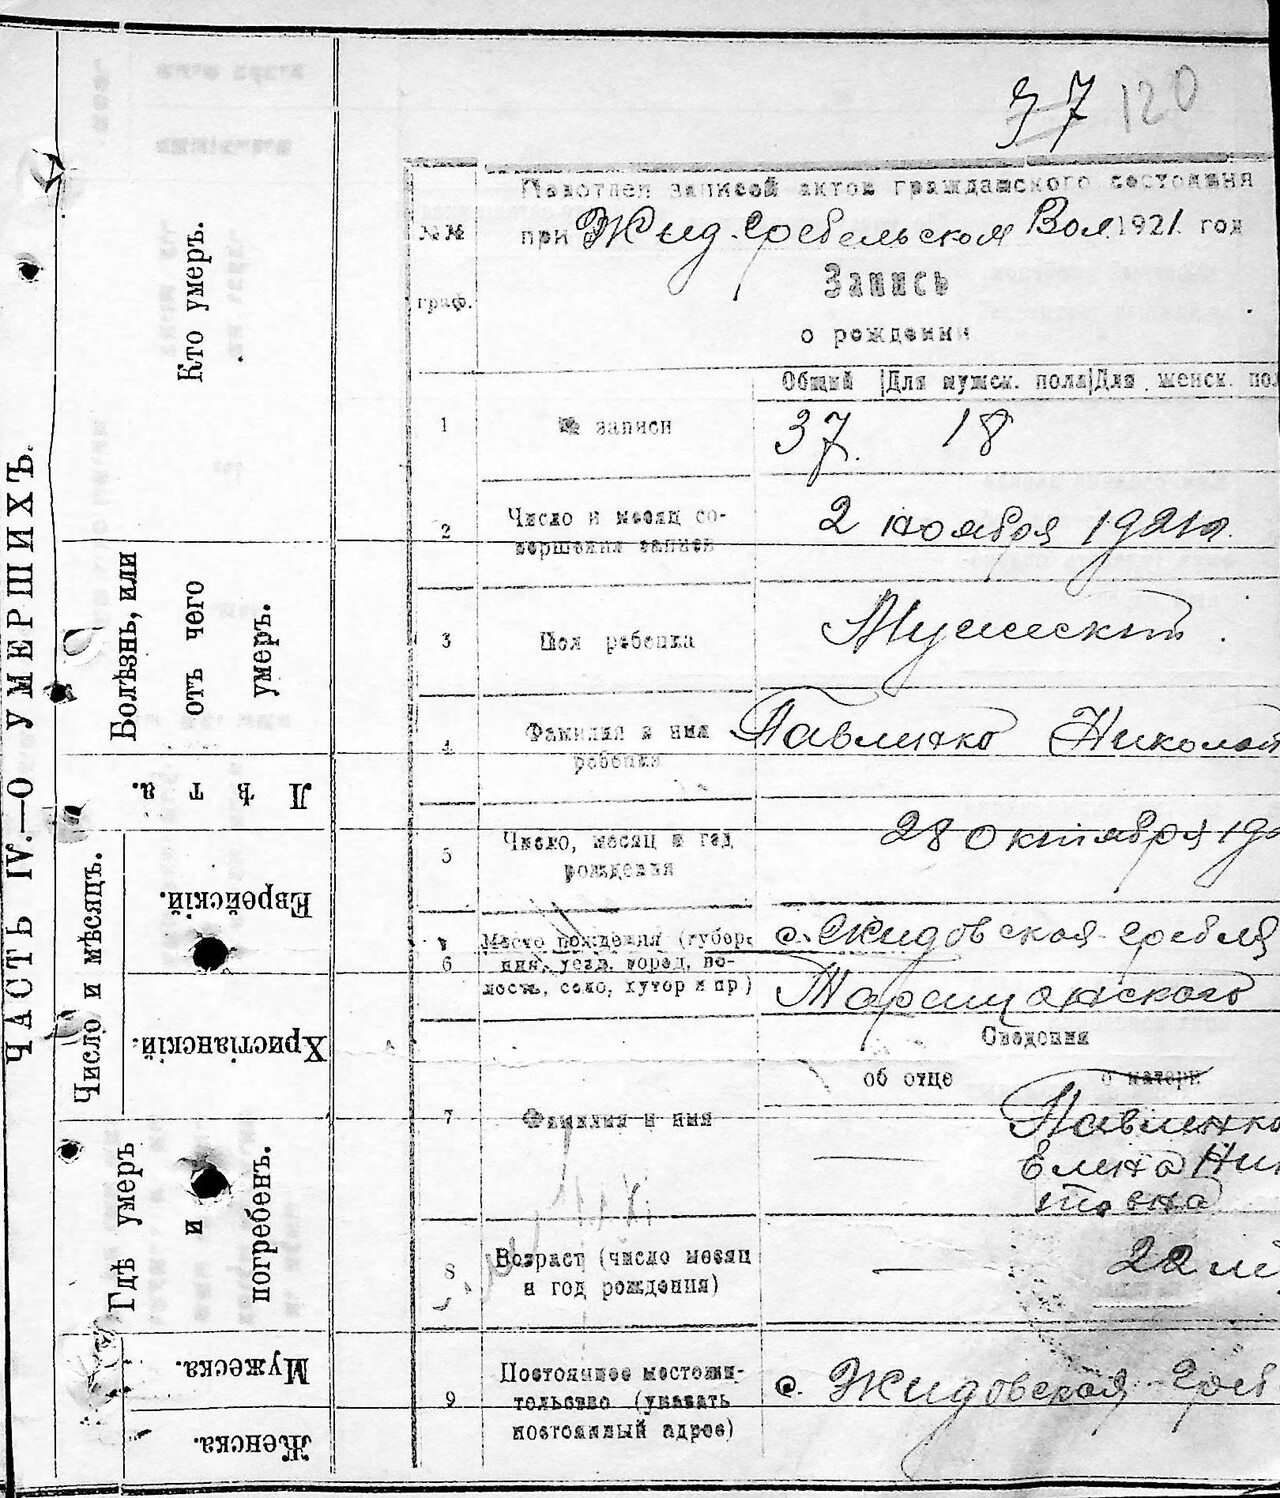 37 120
Подотдел записей актов гражданского состояния
при Жид-Гребельском Вол. 1921 год
№№
граф.
Запись
о рождении
Общий Для мужск. пола Для женск. пол
1 № записи 37. 18
2 Число и месяц со-
вершения записи
2 ноября 1921 г.
3 Пол ребенка Мужеский.
4 Фамилия и имя
ребенка
Павленко Николай
5 Число, месяц и год
рождения
28 октября 192
6 Место рождения (губер-
ния, уезд, город, во-
лость, село, хутор и пр)
с. Жидовская-Гребля
Таращанского
Сведения
об отце о матери
7 Фамилия и имя
— Павленко
Елена Ник
товна
8 Возраст (число месяц
и год рождения)
— 22 ле
9 Постоянное местожи-
тельство (указать
постоянный адрес)
с. Жидовская-Греб
ЧАСТЬ IV.—О УМЕРШИХЪ.
Кто умеръ.
Болѣзнь, или
отъ чего
умеръ.
Лѣта.
Число и мѣсяцъ.
Еврейскій.
Христіанскій.
Гдѣ умеръ
и
погребенъ.
Мужеска.
Женска.